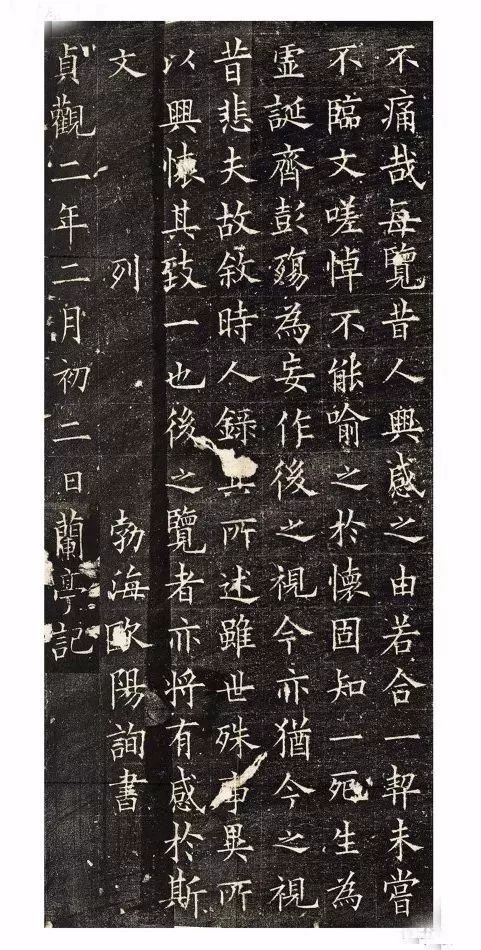 不痛哉每覽昔人興感之由若合一契未嘗
不臨文嗟悼不能喻之於懷固知一死生為
虛誕齊彭殤為妄作後之視今亦猶今之視
昔悲夫故敘時人錄其所述雖世殊事異所
以興懷其致一也後之覽者亦將有感於斯
文 列 勃海歐陽詢書
貞觀二年二月初二日蘭亭記